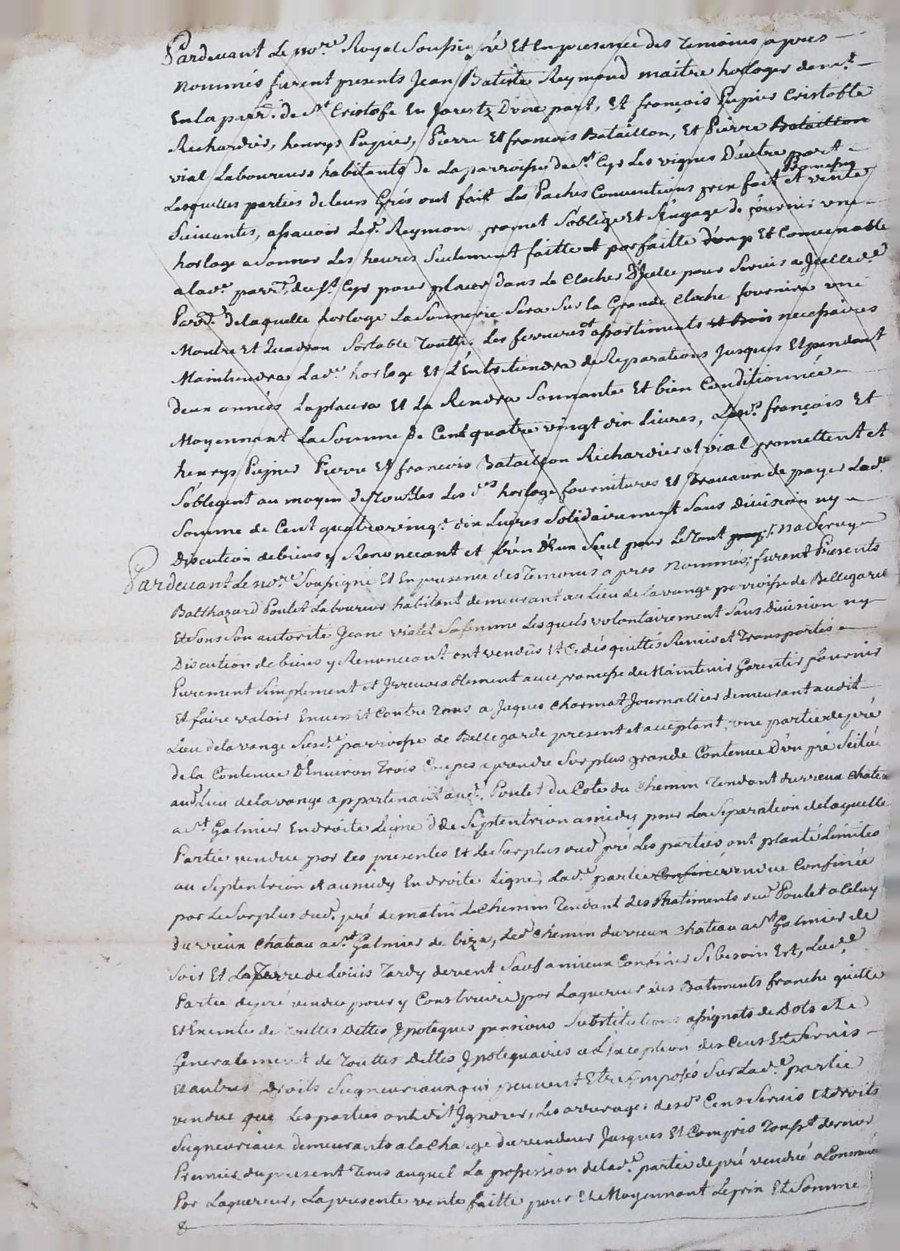 Pardevant Le no.re Royal Soussigné Et En presence des Temoins apres
Nommés furent presents Jean Batiste Reymond maitre horloger dem.t
En la parr. de S.t Cristofe En Jarestz D'une part, Et françois Pupier Cristoble
Richardier, henrys Pupier, Pierre Et francois Bataillon, Et Pierre Bataillon
vial Laboureurs habitants de La parroisse de S.t Cyr Les vignes D'autre part
Lesquelles parties de leurs Grés ont fait Les Paches Conventions prix fait Et vente
Promesses
Suivantes, assavoir Led. Reymond promet S'oblige Et S'Engage de fournir une
horloge a Sonner Les heures Seulement faitte et parfaitte d'oup Et Convenable
a lad.e parr.e de S.t Cyr pour placer dans Le Clocher D'Jcelle pour Servir a Jcelle d.e
Parr.e de laquelle horloge La Sonnerie Sera Sur la Grande Cloche fournira une
Montre et Quadran Sortable Toutte Les ferrures et assortiments et bois necessaires
Maintiendra Lad.e horloge Et L'Entretiendra de Reparations Jusques Et pendant
deux années La placera Et La Rendra Sonnante Et bien Conditionnée
Moyennant La Somme de Cent quatre vingt dix Livres, Lesd. françois Et
henrys Pupier Pierre Et francois Bataillon Richardier et vial promettent et
S'oblegent au moyen de Touttes Les d.es horloge fournitures et Travaux de payer Lad.e
Somme de Cent quatrevingt dix Livres Solidairement Sans division ny
Discution de biens y Renoncant et L'un D'Eux Seul pour Le Tout
Pardevant Le no.re Soussigné Et En presence des Temoins apres Nommés, furent Presents
Balthazard Poulet Laboureur habitant demeurant au Lieu de La vange parroisse de Bellegarde
Et Sous Son autorité Jeane violet Sa femme Lesquels volontairement Sans division ny
Discution de biens y Renoncant ont vendus Et Cedés quittés Remis et Transportés
Purement Simplement et Irrevocablement avec promesse de Maintenir Garentir fournir
Et faire valoir Envers Et Contre Tous a Jaques Charmat Journallier demeurant audit
Lieu de la vange Susd.e parroisse de Bellegarde present et acceptant, une partie de pré
de la Contenue D'Environ Trois Coupes a prendre Sur plus grande Contenue D'un pré Scitué
aud. lieu de la vange appartenant aud. Poulet du Coté du Chemin Tendant du vieux Chateau
a S.t Galmier En droite Ligne de Septentrion a midy pour La Separation de laquelle
Partie vendue par Les presentes et Le Surplus dud. pré Les parties ont planté Limites
au Septentrion et au midy En droite Ligne, Lad.e partie Confinée vendue Confinée
par Le Surplus dud. pré de matin Le Chemin Tendant des Batiments dud. Poulet a Celuy
du vieux Chateau a S.t Galmier de bize, Led. Chemin du vieux Chateau a S.t Galmier de
Soir Et La Terre de Louis Tardy de vent Sauf a mieux Confiner Si besoin Est, Lad.e
Partie de pré vendue pour y Construire par Laquereur des Batiments franche quitte
Et Exempte de Touttes dettes Ypoteques pensions Substitutions assignats de Dots et
Generalement de Touttes dettes Ypotequaires a L'Exception des Cens Et Servis
et autres Droits Seigneuriaux qui peuvent Etre Imposés Sur Lad.e partie
vendue que Les parties ont dit Ignorer, Les arrerages desd. Cens Servis et droits
Seigneuriaux demeurants a la Charge du vendeur Jusques Et Compris dernier
Premier du present Tems auquel La possession de lad.e partie de pré vendue a Commencé
Par Laquereur, La presente vente faitte pour Et Moyennant Le prix Et Somme